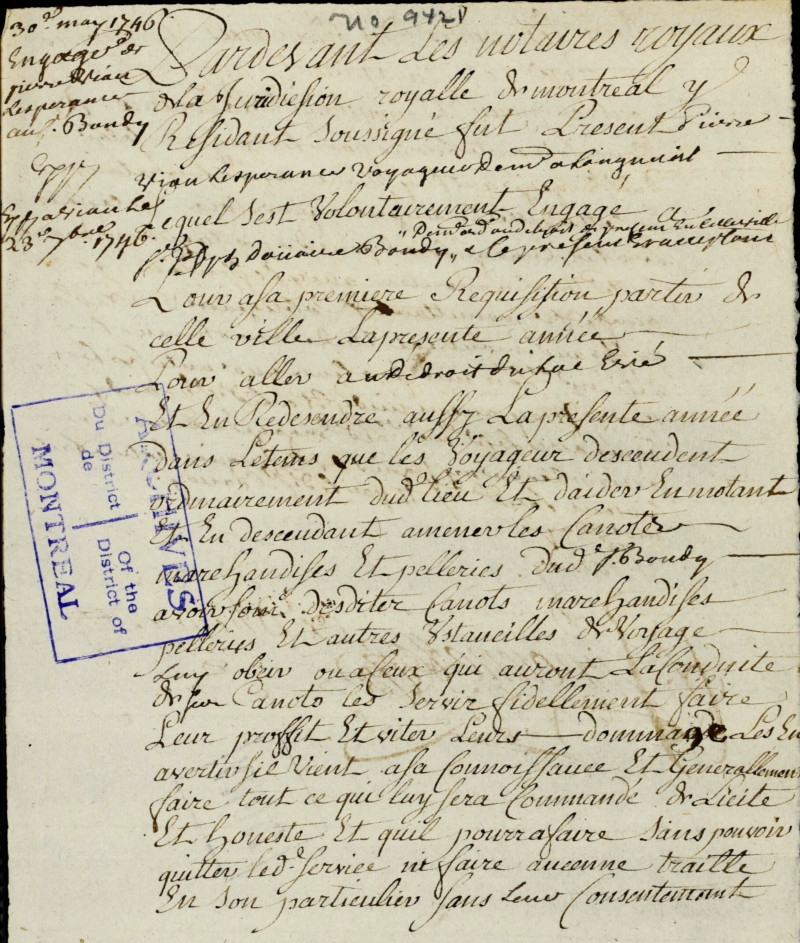 No 9421
30e may 1746
Engagemt de
pierre Vian
Lesperance
au Sr. Bondy
Expy
Expa Vian Le
23e 7bre 1746.
Pardevant Les notaires royaux
de la Juridiction royalle de montreal y
Residant Soussigné fut Present Pierre
Vian Lesperance Voyageur demt a Longueuil
Lequel s'est Volontairement Engagé A
demt ord. au detroit de present En cette ville
Sr. Jph Douaire Bondy a ce present & acceptant
Pour asa premiere Requisition partir de
celle ville Lapresente année
Pour aller au detroit du Lac Erié
Et En Redesendre aussy Lapresente année
dans Letems que les Voyageur descendent
ordinairement dud. lieu Et daider En motant
Et En descendant amener les Canots
marchandises Et pelleries dud. Sr. Bondy
avoir soin desditer Canots marchandises
pelleries Et autres Ustancilles de Voyage
Luy obeir ou a Ceux qui auront La Conduite
de ses Canots les Servir fidellement faire
Leur proffit Eviter Leurs dommage Les En
avertir sil Vient asa Connoissance Et Generallement
faire tout ce qui luy sera Commandé de Licite
Et honeste Et quil pourra faire Sans pouvoir
quitter led. Service ni faire aucenne traitte
En Son particulier Sans Leur Consentement
ARCHIVES
Du District
de
Of the
District of
MONTREAL